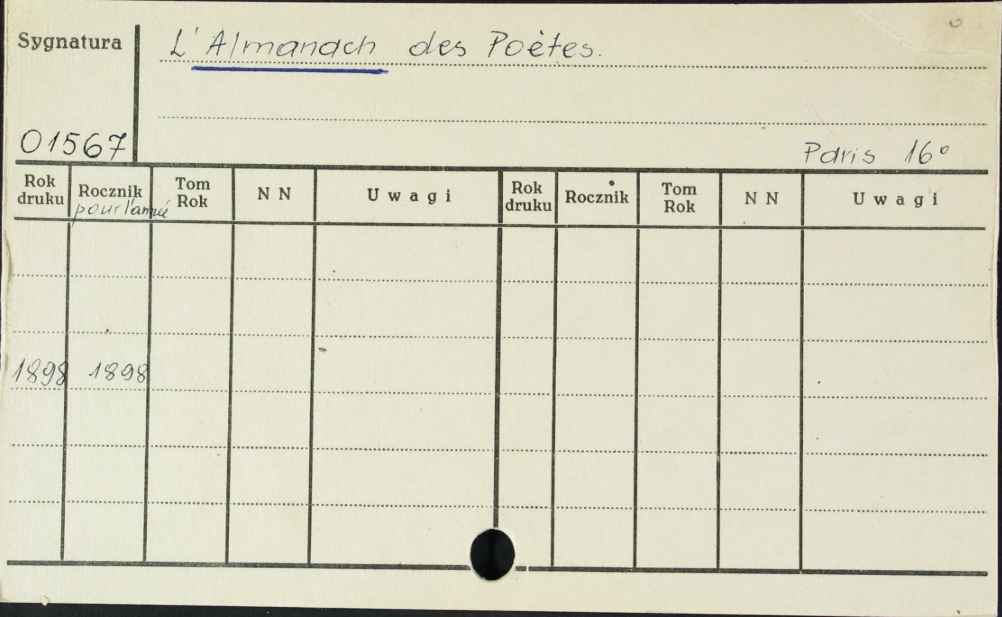 Sygnatura
L'Almanach des Poètes.
01567
Paris 16°
Rok druku Rocznik pour l'année Tom Rok N N Uwagi Rok druku Rocznik Tom Rok N N Uwagi
1898 1898